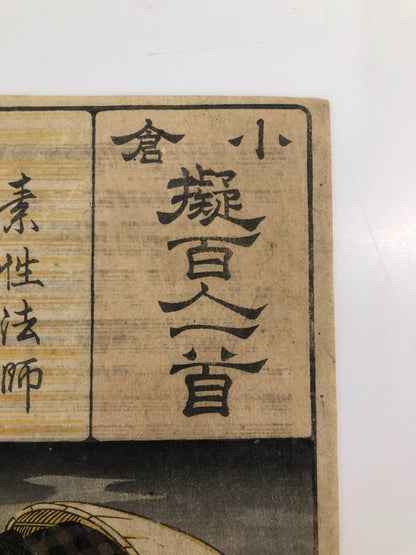 小倉
擬百人一首
素性法師